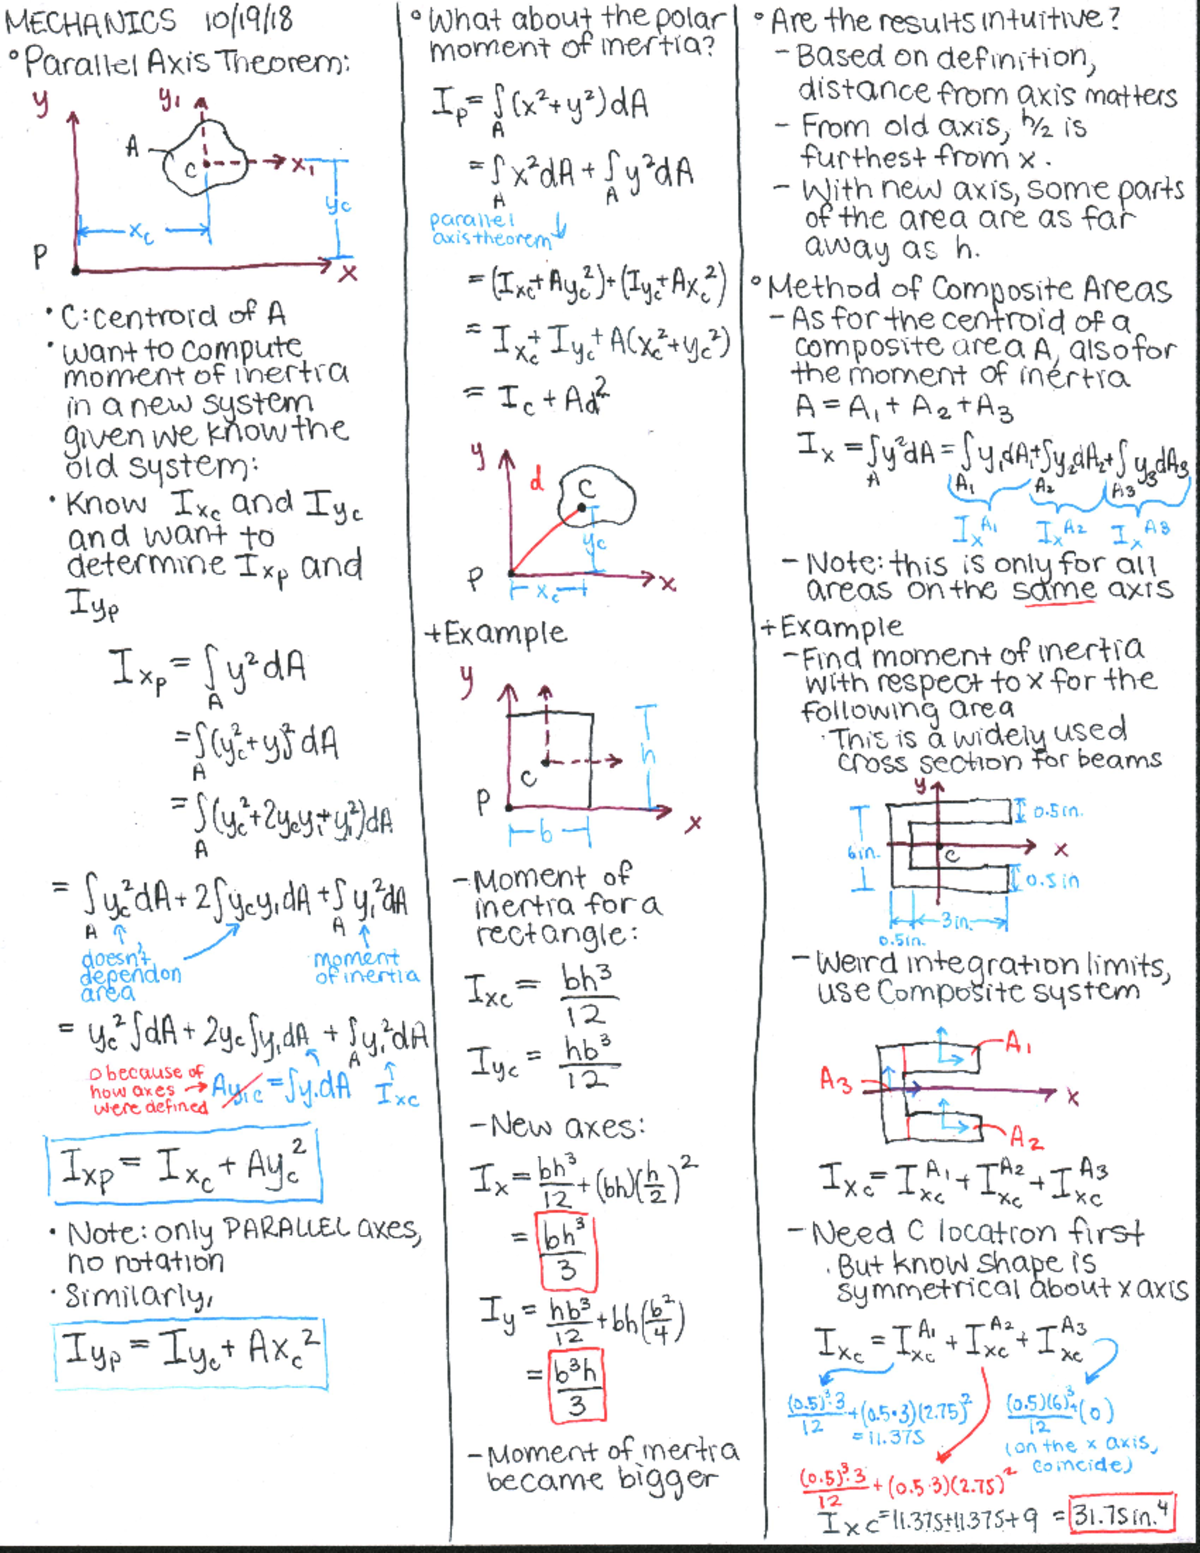 MECHANICS 10/19/18
° Parallel Axis Theorem:
y y₁
A
C x₁
y_c
x_c
P x
· C: centroid of A
· Want to compute
moment of inertia
in a new system
given we know the
old system:
· Know I_xc and I_yc
and want to
determine I_xp and
I_yp
I_xp = ∫_A y² dA
= ∫_A (y_c² + y₁)² dA
= ∫_A (y_c² + 2y_c y₁ + y₁²) dA
= ∫_A y_c² dA + 2∫ y_c y₁ dA + ∫_A y₁² dA
doesn't
depend on
area
moment
of inertia
= y_c² ∫dA + 2y_c ∫y₁dA + ∫_A y₁² dA
0 because of
how axes → Ay₁c = ∫y₁dA I_xc
were defined
I_xp = I_xc + Ay_c²
· Note: only PARALLEL axes,
no rotation
· Similarly,
I_yp = I_yc + Ax_c²
° What about the polar
moment of inertia?
I_p = ∫_A (x² + y²) dA
= ∫_A x² dA + ∫_A y² dA
parallel
axis theorem ↓
= (I_xc + Ay_c²) + (I_yc + Ax_c²)
= I_xc + I_yc + A(x_c² + y_c²)
= I_c + Ad²
y
d C
y_c
P x_c x
+ Example
y
h
C
P x
b
- Moment of
inertia for a
rectangle:
I_xc = bh³/12
I_yc = hb³/12
- New axes:
I_x = bh³/12 + (bh)(h/2)²
= bh³/3
I_y = hb³/12 + bh(b²/4)
= b³h/3
- Moment of inertia
became bigger
° Are the results intuitive?
- Based on definition,
distance from axis matters
- From old axis, h/2 is
furthest from x.
- With new axis, some parts
of the area are as far
away as h.
° Method of Composite Areas
- As for the centroid of a
composite area A, also for
the moment of inertia
A = A₁ + A₂ + A₃
I_x = ∫_A y² dA = ∫_A₁ y₁dA₁ + ∫_A₂ y₂dA₂ + ∫_A₃ y₃dA₃
I_x^A₁ I_x^A₂ I_x^A₃
- Note: this is only for all
areas on the same axis
+ Example
- Find moment of inertia
with respect to x for the
following area
· This is a widely used
cross section for beams
y
0.5in.
6in. C x
0.5in
3in.
0.5in.
- Weird integration limits,
use Composite system
A₁
A₃ x
A₂
I_xc = I_xc^A₁ + I_xc^A₂ + I_xc^A₃
- Need C location first
· But know shape is
symmetrical about x axis
I_xc = I_xc^A₁ + I_xc^A₂ + I_xc^A₃
(0.5)³·3/12 + (0.5·3)(2.75)²
= 11.375
(0.5)(6)³/12 + (0)
(on the x axis,
coincide)
(0.5)³·3/12 + (0.5·3)(2.75)²
I_xc = 11.375 + 11.375 + 9 = 31.75in.⁴